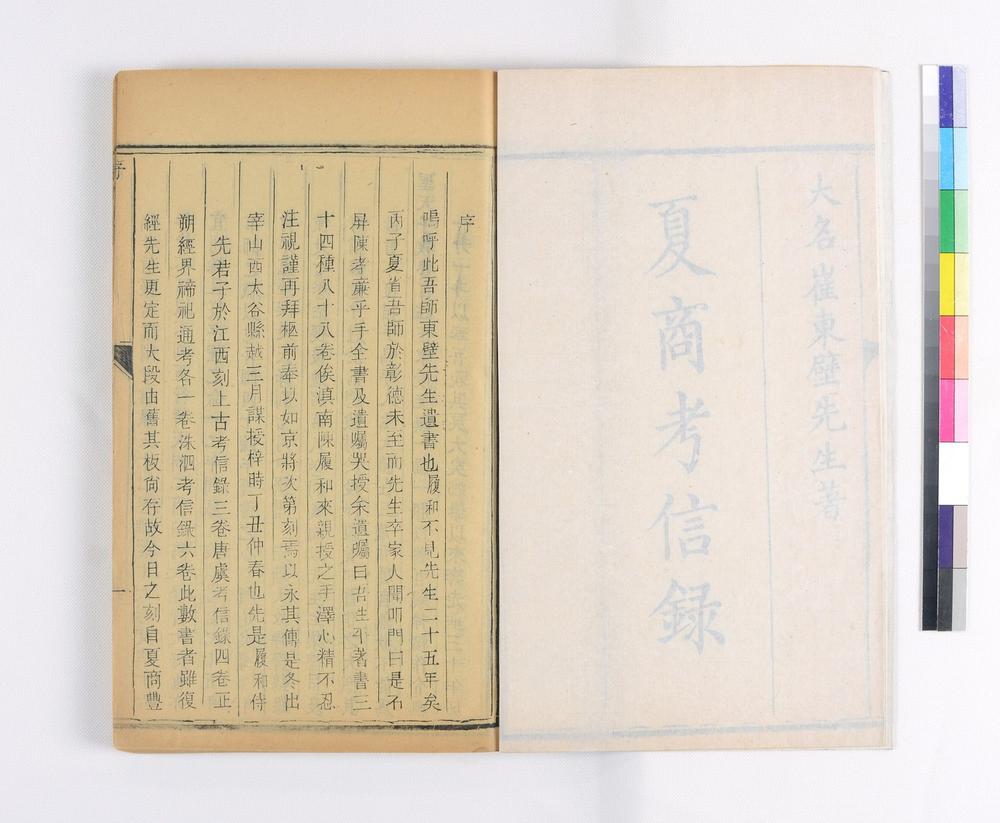 大名崔東壁先生著
夏商考信錄
序
嗚呼此吾師東壁先生遺書也履和不見先生二十五年矣
丙子夏省吾師於彰德未至而先生卒家人聞叩門曰是不
屏陳孝亷乎手全書及遺囑哭授余遺囑曰吾生平著書三
十四種八十八卷俟滇南陳履和來親授之手澤心精不忍
注視謹再拜柩前奉以如京將次第刻焉以永其傳是冬出
宰山西太谷縣越三月謀授梓時丁丑仲春也先是履和侍
先君子於江西刻上古考信錄三卷唐虞考信錄四卷正
朔經界禘祀通考各一卷洙泗考信錄六卷此數書者雖復
經先生更定而大段由舊其板尙存故今日之刻自夏商豐
序